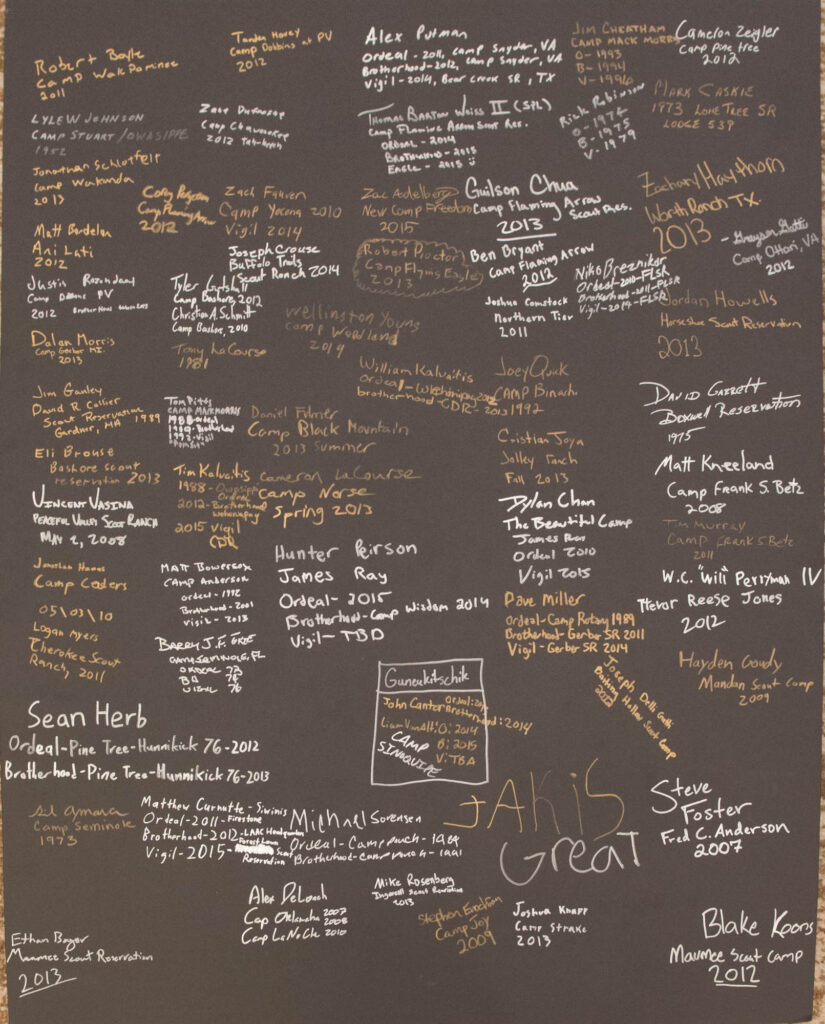 Robert Boyle
Camp Wakpominee
2011
Tanden Haney
Camp Dobbins at PV
2012
Alex Putman
Ordeal - 2011, Camp Snyder, VA
Brotherhood-2012, Camp Snyder, VA
Vigil - 2014, Bear Creek SR, TX
Jim Cheatham
Camp Mack Morris
O- 1993
B- 1994
V- 1996
Cameron Zeigler
Camp Pine tree
2012
Lyle W Johnson
Camp Stuart/Owasippe
1952
Zane
Camp Chawanakee
2012
Thomas Barton Weiss II (SPL)
Camp Flaming Arrow Scout Res.
Ordeal - 2014
Brotherhood - 2015
Eagle - 2015
Rick Robinson
O - 1974
B - 1975
V - 1979
Mark Caskie
1973 Lone Tree SR
Lodge 539
Jonathan Schlotfelt
Camp Wakonda
2013
Cory
Camp Flaming Arrow
2012
Zach Fauver
Camp Yocona 2010
Vigil 2014
Zac Aodelberg
New Camp Freedom
2015
Guilson Chua
Camp Flaming Arrow
Scout Res.
2013
Zachary Haythorn
Worth Ranch TX.
2013
Matt
Ani Lati
2012
Joseph Crouse
Buffalo Trails
Scout Ranch 2014
Robert Proctor
Camp Flying Eagle
2013
Ben Bryant
Camp Flaming Arrow
2012
Niko Breznikar
Ordeal-2010-FLSR
Brotherhood-2011-FLSR
Vigil-2014-FLSR
Camp Ottari, VA
2012
Justis
Camp PV
2012
Tyler
Camp Bashore, 2012
Christian A. Schmitt
Camp Bashore, 2010
Wellington Young
Camp Woodland
2014
Joshua Comstock
Northern Tier
2011
Jordan Howells
Horseshoe Scout Reservation
2013
Dalan Morris
Camp Gerber MI.
2013
Tony LaCourse
1981
William Kalvaitis
Ordeal-
brotherhood-CDR- 2013
Joey Quick
Camp Binachi
1992
David Garrett
Boxwell Reservation
1975
Jim Ganley
David R Collier
Scout Reservation
Gardner, MA 1989
Tom Pitts
Camp Mack Morris
1988 Ordeal
1989 - Brotherhood
1992 - Vigil
Daniel Fulmer
Camp Black Mountain
2013 Summer
Cristian Joya
Jolley Ranch
Fall 2013
Eli Brouse
Bashore scout
reservation 2013
Tim Kalvaitis
1988-Owasippe
Ordeal
2012-Brotherhood
2015 Vigil
CDR
Cameron LaCourse
Camp Norse
Spring 2013
Matt Kneeland
Camp Frank S. Betz
2008
Vincent Vasina
Peaceful Valley Scout Ranch
May 2, 2008
Dylan Chan
The Beautiful Camp
James Ray
Ordeal 2010
Vigil 2015
Tim Murray
Camp Frank S Betz
2011
Jonathan
Camp Coders
Matt Bowersox
Camp Anderson
ordeal - 1992
Brotherhood - 2001
vigil - 2013
Hunter Peirson
James Ray
Ordeal - 2015
Brotherhood-Camp Wisdom 2014
Vigil- TBD
W.C. "Will" Perryman IV
Trevor Reese Jones
2012
05\03\10
Logan Myers
Cherokee Scout
Ranch, 2011
Barry J.F.
Camp Seminole, FL
Ordeal 73
BH 74
Vigil 76
Dave Miller
Ordeal-Camp Rotary 1989
Brotherhood-Gerber SR 2011
Vigil- Gerber SR 2014
Hayden Goudy
Mandan Scout Camp
2009
Joseph Delli Gatti
Baiting Hollow Scout Camp
2012
Guneukitschik
John Canter
Ordeal:
Brotherhood:2014
O: 2014
B: 2015
V: TBA
Camp
Sinoquipe
Sean Herb
Ordeal-Pine Tree-Hunnikick 76-2012
Brotherhood-Pine Tree-Hunnikick 76-2013
Camp Seminole
1973
Matthew Curnutte - Siwinis
Ordeal-2011-Firestone
Brotherhood-2012-LAAC Headquarters
Vigil-2015-
Forest Lawn
Scout
Reservation
Michael Sorensen
Ordeal-
Brotherhood-
JAK is
Great
Steve
Foster
Fred C. Anderson
2007
Alex DeLoach
Camp Oklawaha 2007
2008
Camp LaNoChe 2010
Mike Rosenberg
Ingersoll Scout Reservation
2013
Stephen
Camp Joy
2009
Joshua Knapp
Camp Strake
2013
Ethan Bayer
Maumee Scout Reservation
2013
Blake Koons
Maumee Scout Camp
2012